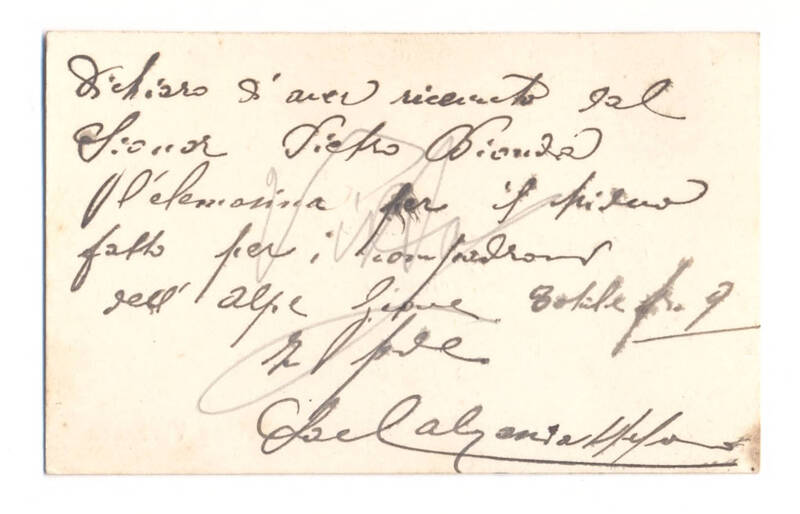 Dichiaro d'aver ricevuto dal
Signor Pietro Bionda
l'elemosina per il
fatto per i compadroni
dell'alpe totale fr. 9
In fede